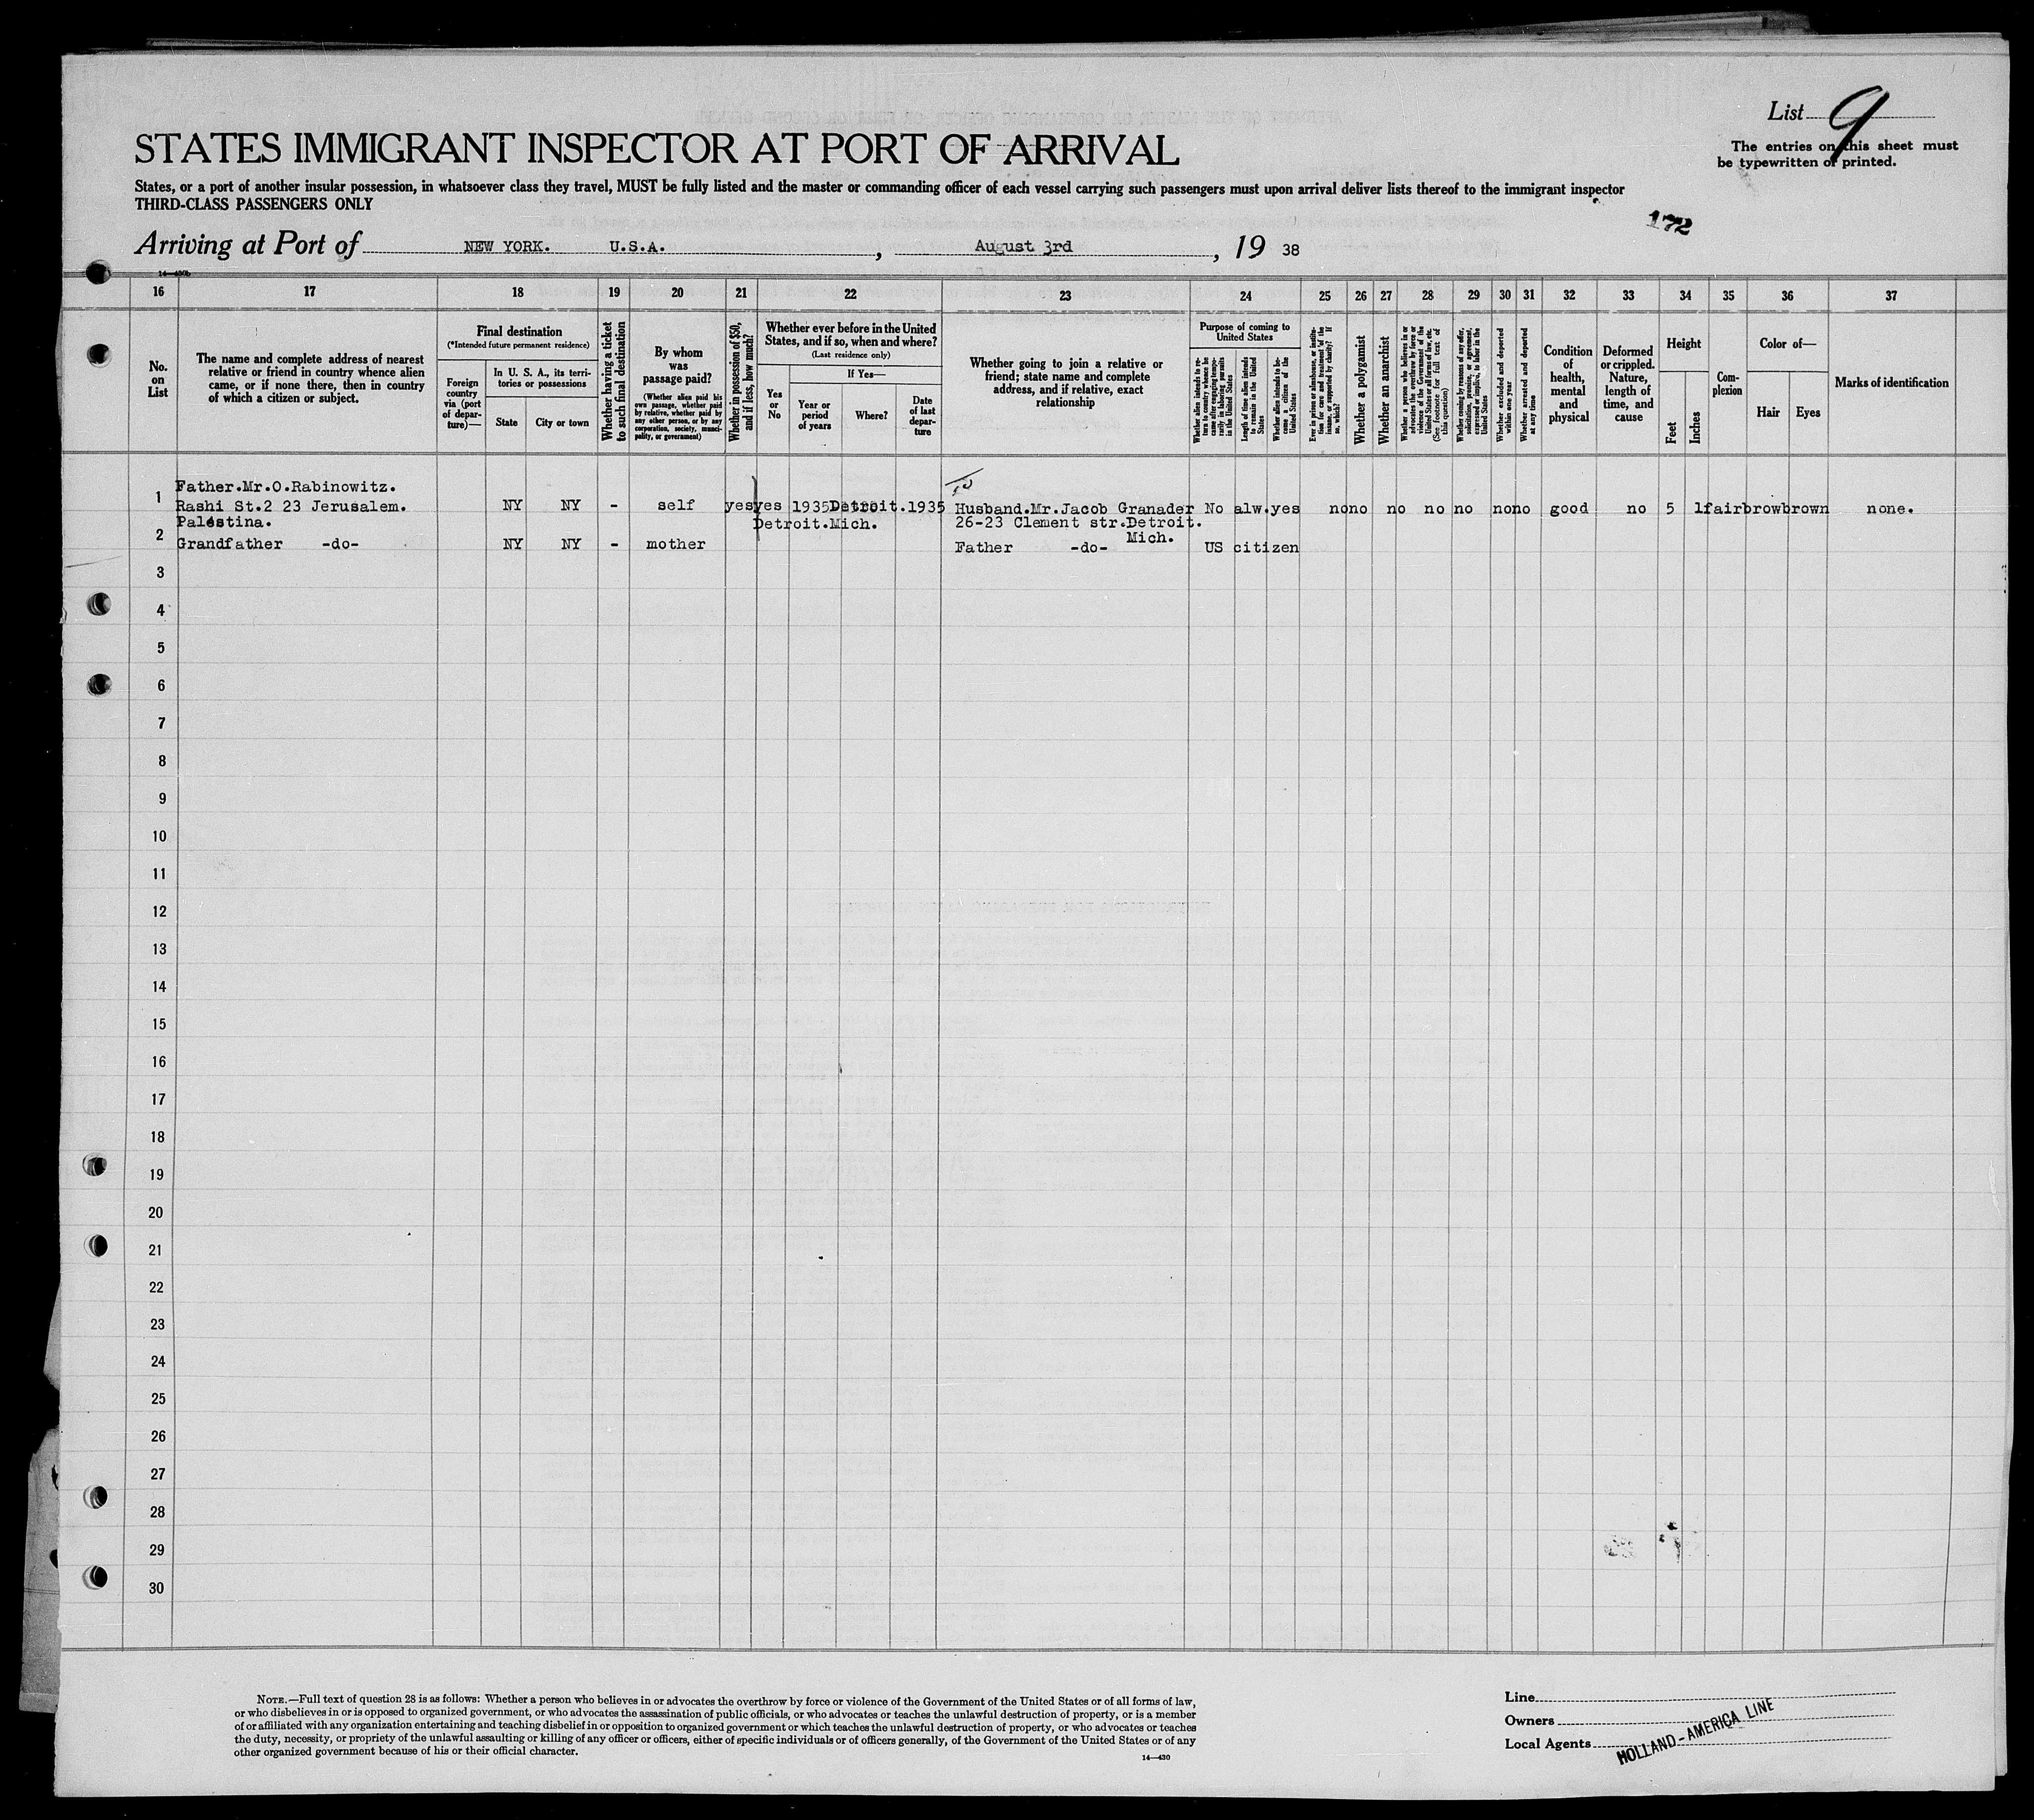 List 9
The entries on this sheet must
be typewritten or printed.
STATES IMMIGRANT INSPECTOR AT PORT OF ARRIVAL
States, or a port of another insular possession, in whatsoever class they travel, MUST be fully listed and the master or commanding officer of each vessel carrying such passengers must upon arrival deliver lists thereof to the immigrant inspector
THIRD-CLASS PASSENGERS ONLY
172
Arriving at Port of NEW YORK. U.S.A. , August 3rd , 19 38
16 17 18 19 20 21 22 23 24 25 26 27 28 29 30 31 32 33 34 35 36 37
No.
on
List
The name and complete address of nearest
relative or friend in country whence alien
came, or if none there, then in country
of which a citizen or subject.
Final destination
(*Intended future permanent residence)
Foreign
country
via (port
of depar-
ture)—
In U. S. A., its terri-
tories or possessions
State
City or town
Whether having a ticket
to such final destination
By whom
was
passage paid?
(Whether alien paid his
own passage, whether paid
by relative, whether paid by
any other person, or by any
corporation, society, munici-
pality, or government)
Whether in possession of $50,
and if less, how much?
Whether ever before in the United
States, and if so, when and where?
(Last residence only)
Yes
or
No
If Yes—
Year or
period
of years
Where?
Date
of last
depar-
ture
Whether going to join a relative or
friend; state name and complete
address, and if relative, exact
relationship
Purpose of coming to
United States
Whether alien intends to re-
turn to country whence he
came after engaging tempo-
rarily in laboring pursuits
in the United States
Length of time alien intends
to remain in the United
States
Whether alien intends to be-
come a citizen of the
United States
Ever in prison or almshouse, or institu-
tion for care and treatment of the
insane, or supported by charity? If
so, which?
Whether a polygamist
Whether an anarchist
Whether a person who believes in or
advocates the overthrow by force or
violence of the Government of the
United States or all forms of law, etc.
(See footnote for full text of
this question)
Whether coming by reasons of any offer,
solicitation, promise, or agreement,
expressed or implied, to labor in the
United States
Whether excluded and deported
within one year
Whether arrested and deported
at any time
Condition
of
health,
mental
and
physical
Deformed
or crippled.
Nature,
length of
time, and
cause
Height
Feet
Inches
Com-
plexion
Color of—
Hair
Eyes
Marks of identification
Father.Mr.O.Rabinowitz.
1 Rashi St.2 23 Jerusalem. NY NY - self yes yes 1935 Detroit.1935 Husband.Mr.Jacob Granader No alw. yes no no no no no no no good no 5 1 fair brow brown none.
Palestina. Detroit.Mich. 26-23 Clement str.Detroit.
Mich.
2 Grandfather -do- NY NY - mother Father -do- US citizen
3
4
5
6
7
8
9
10
11
12
13
14
15
16
17
18
19
20
21
22
23
24
25
26
27
28
29
30
NOTE.—Full text of question 28 is as follows: Whether a person who believes in or advocates the overthrow by force or violence of the Government of the United States or of all forms of law,
or who disbelieves in or is opposed to organized government, or who advocates the assassination of public officials, or who advocates or teaches the unlawful destruction of property, or is a member
of or affiliated with any organization entertaining and teaching disbelief in or opposition to organized government or which teaches the unlawful destruction of property, or who advocates or teaches
the duty, necessity, or propriety of the unlawful assaulting or killing of any officer or officers, either of specific individuals or of officers generally, of the Government of the United States or of any
other organized government because of his or their official character.
14—430
Line
Owners
Local Agents
HOLLAND-AMERICA LINE